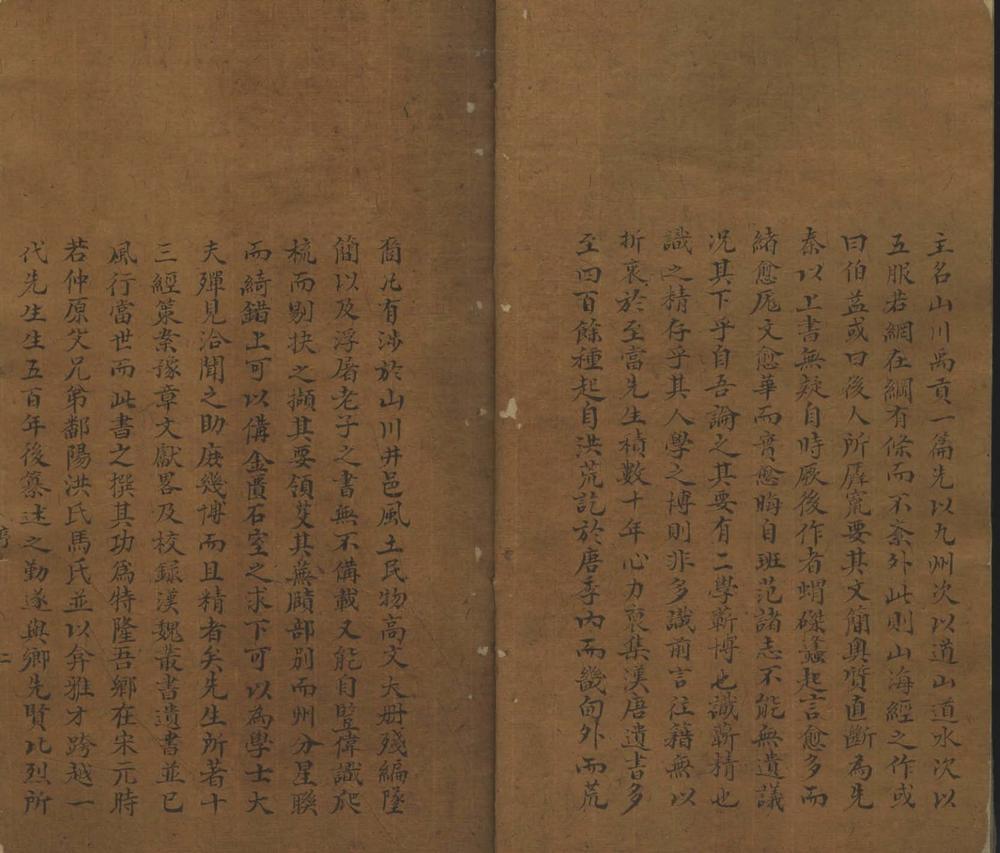 主名山川禹貢一篇先以九州次以道山道水次以
五服若網在綱有條而不紊外此則山海經之作或
曰伯益或曰後人所孱竄要其文簡奧質直斷為先
秦以上書無疑自時厥後作者蝟磔蠭起言愈多而
緒愈厖文愈華而實愈晦自班范諸志不能無遺議
况其下乎自吾論之其要有二學蘄博也識蘄精也
識之精存乎其人學之博則非多識前言往籍無以
折衷於至當先生積數十年心力裒集漢唐遺書多
至四百餘種起自洪荒訖於唐季內而畿甸外而荒
裔凡有涉於山川井邑風土民物高文大册殘編墜
簡以及浮屠老子之書無不備載又能自豎偉識爬
梳而剔抉之擷其要領芟其蕪賾部別而州分星聯
而綺錯上可以備金匱石室之求下可以為學士大
夫殫見洽聞之助庶幾博而且精者矣先生所著十
三經策案豫章文獻畧及校錄漢魏叢書遺書並已
風行當世而此書之撰其功為特隆吾鄉在宋元時
若仲原父兄弟鄱陽洪氏馬氏並以弇雅才跨越一
代先生生五百年後纂述之勤遂與鄉先賢比烈所
序
二